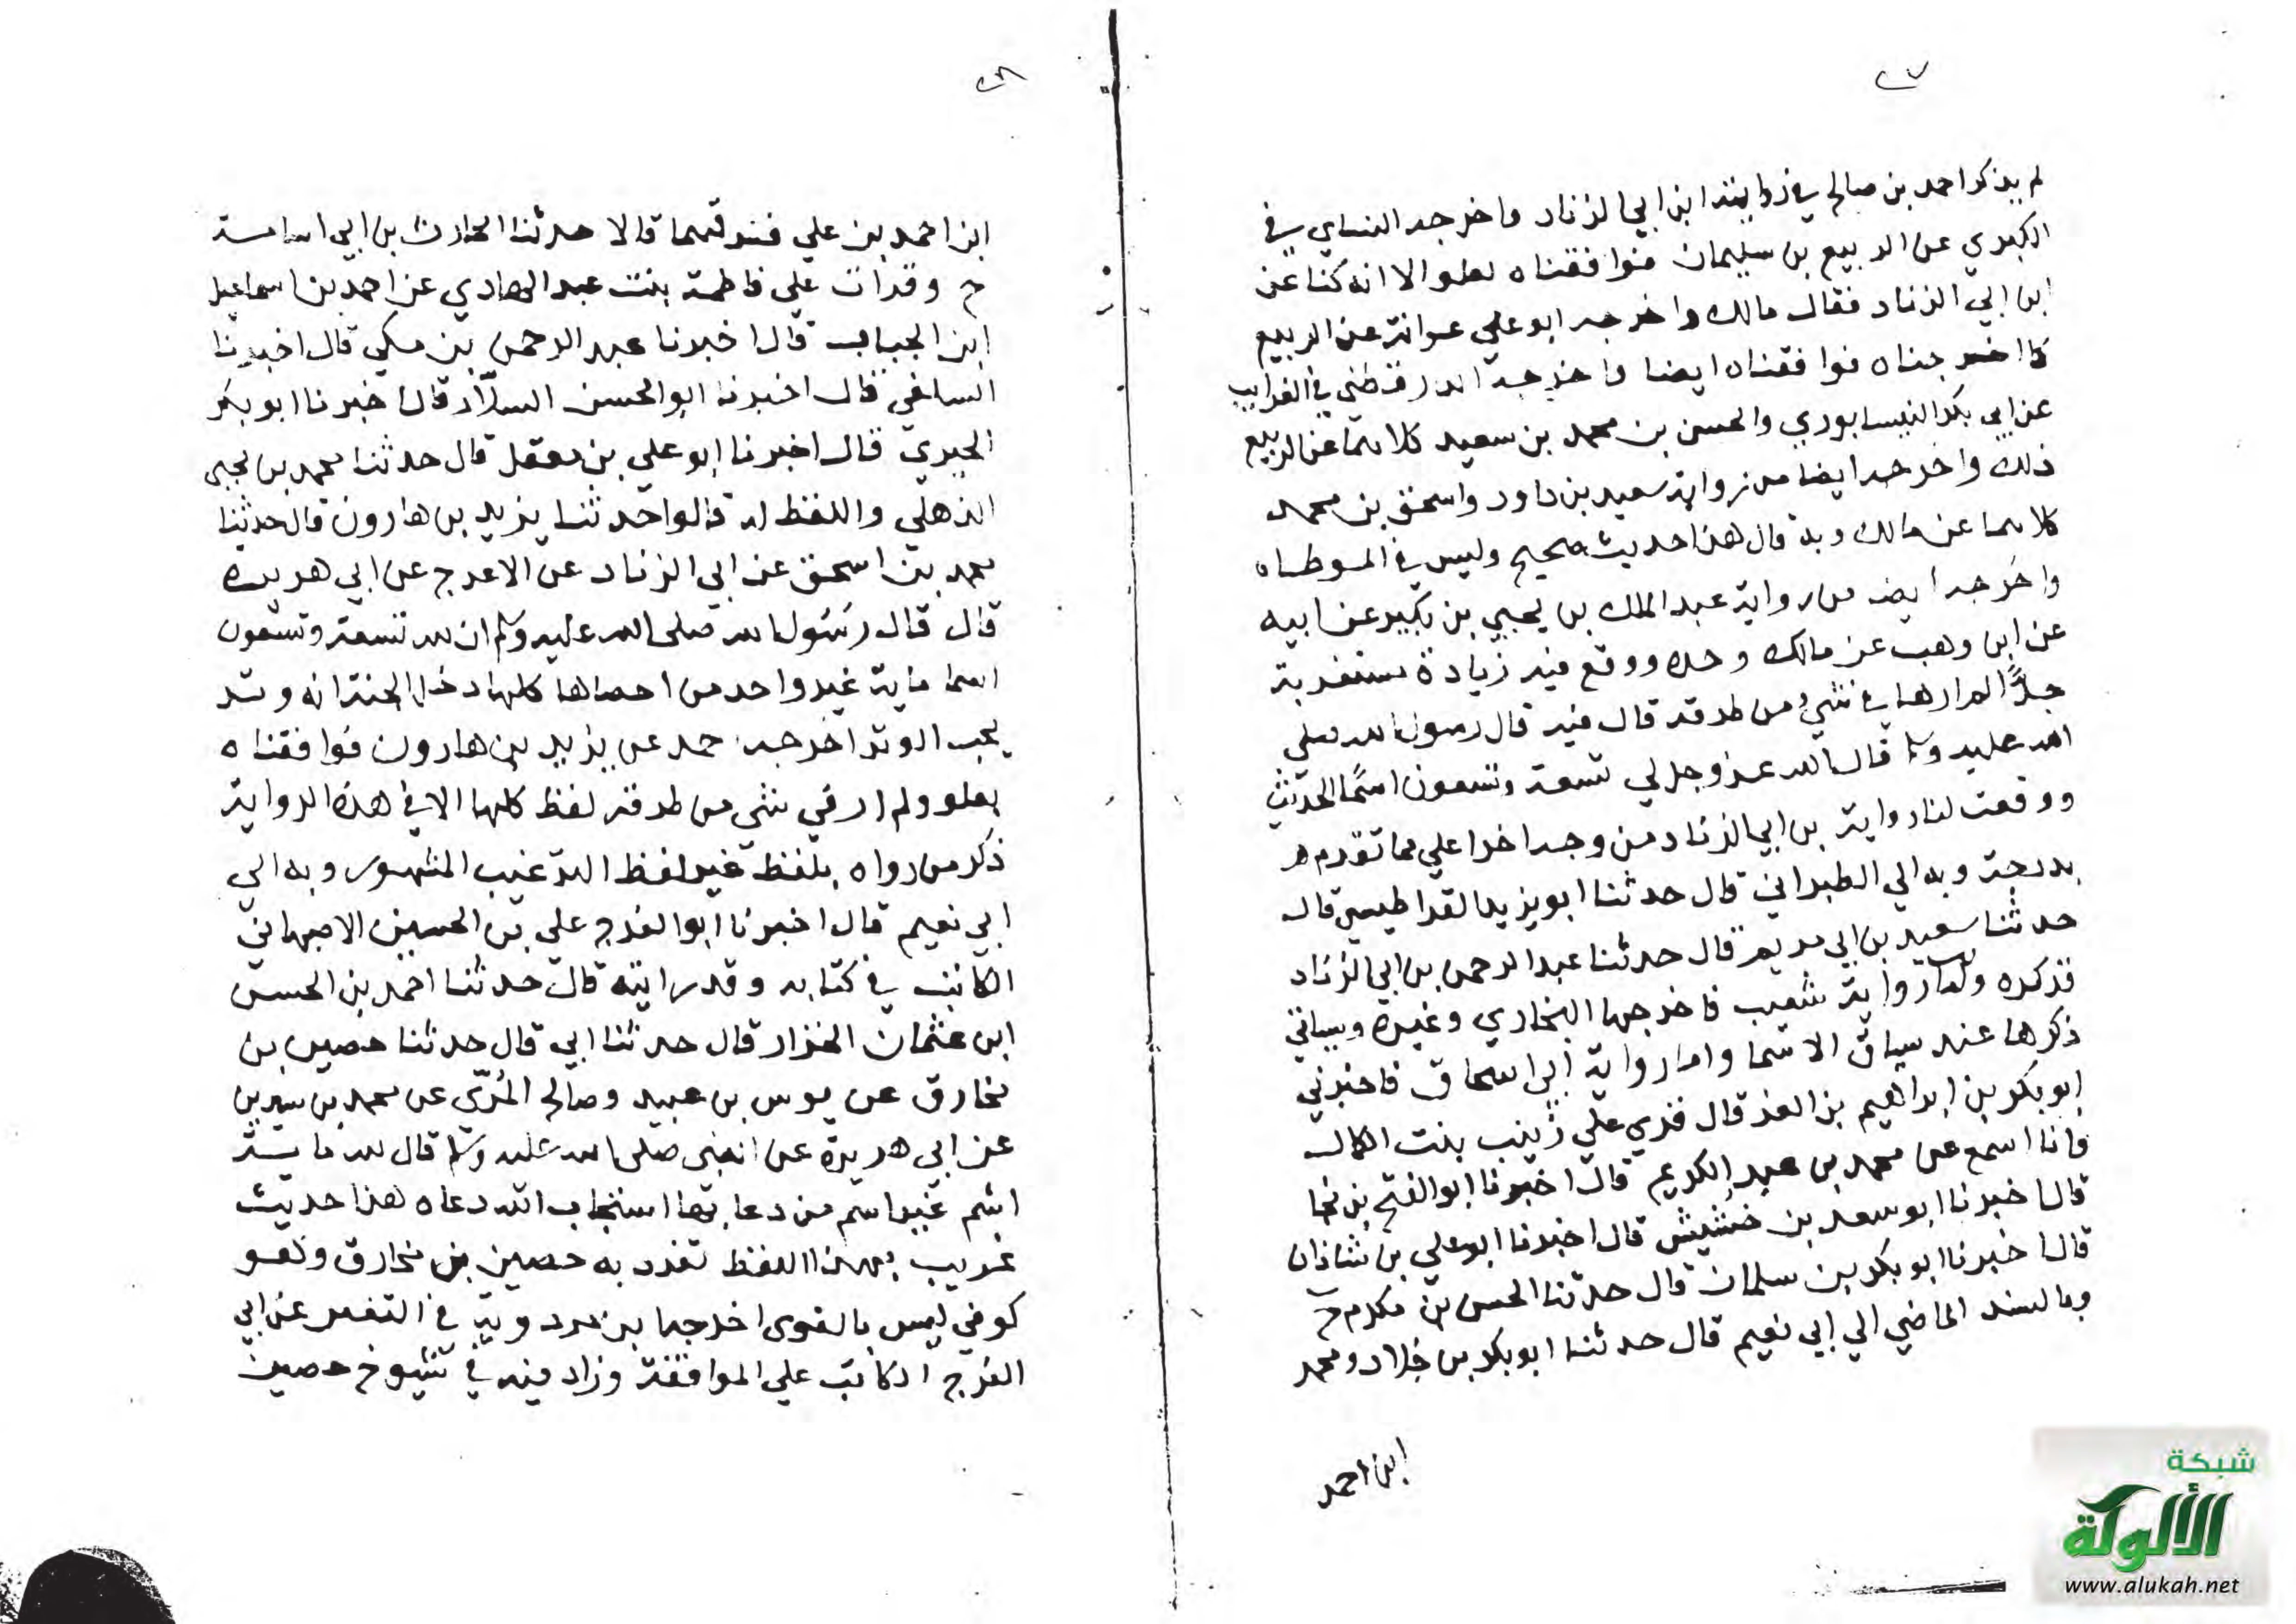 ٢٧
لم يذكر احمد بن صالح في روايته ابن ابي الزناد واخرجه النساي في
الكبري عن الربيع بن سليمان فوافقناه بعلو الا انه كنا عن
ابن ابي الزناد فقال مالك واخرجه ابو علي عوانة عن الربيع
كما اخرجناه فوافقناه ايضا واخرجه الدارقطني في الغرايب
عن ابي بكر النيسابوري والحسن بن محمد بن سعيد كلاهما عن الربيع
ذلك واخرجه ايضا من رواية سعيد بن داود واسحق بن محمد
كلاهما عن مالك وبه قال هذا حديث صحيح وليس في الموطاه
واخرجه ايضا من رواية عبد الملك بن يحيي بن بكير عن ابيه
عن ابن وهب عن مالك وحده ووقع فيه زيادة مستغربة
جدًّا لم ارها في شيء من طرقه قال فيه قال رسول الله صلي
الله عليه وسلم قال الله عز وجل لي تسعة وتسعون اسمًا الحديث
ووقعت لنا رواية بن ابي الزناد من وجه اخر اعلي مما تقدم
بدرجة وبه الي الطبراني قال حدثنا ابو يزيد القراطيسي قال
حدثنا سعيد بن ابي مريم قال حدثنا عبد الرحمن بن ابي الزناد
فذكره واما رواية شعيب فاخرجها البخاري وغيره وسياتي
ذكرها عند سياق الاسما واما رواية ابن اسحاق فاخبرني
ابو بكر بن ابراهيم بن العز قال قري علي زينب بنت الكمال
وانا اسمع عن محمد بن عبد الكريم قال اخبرنا ابو الفتح بن نجا
قال اخبرنا ابو سعد بن خشيش قال اخبرنا ابو علي بن شاذان
قال اخبرنا ابو بكر بن سلمان قال حدثنا الحسن بن مكرم ح
وبالسند الماضي الي ابي نعيم قال حدثنا ابو بكر بن خلاد ومحمد
ابن احمد
٢٨
ابن احمد بن علي فرقهما قالا حدثنا الحارث بن ابي اسامة
ح وقرات علي فاطمة بنت عبد الهادي عن احمد بن اسماعيل
ابن الجباب قال اخبرنا عبد الرحمن بن مكي قال اخبرنا
السلفي قال اخبرنا ابو الحسن السلّار قال اخبرنا ابو بكر
الحيري قال اخبرنا ابو علي بن معقل قال حدثنا محمد بن يحيى
الذهلي واللفظ له قالوا حدثنا يزيد بن هارون قال حدثنا
محمد بن اسحق عن ابي الزناد عن الاعرج عن ابي هريرة
قال قال رسول الله صلى الله عليه وسلم ان لله تسعة وتسعون
اسما ماية غير واحد من احصاها كلها دخل الجنة انه وتر
يحب الوتر اخرجه حمد عن يزيد بن هارون فوافقناه
بعلو ولم ار في شي من طرقه لفظ كلها الا في هذه الرواية
ذكر من رواه بلفظ غير لفظ الترغيب المشهور وبه الي
ابي نعيم قال اخبرنا ابو الفرج علي بن الحسين الاصبهاني
الكاتب في كتابه وقد رايته قال حدثنا احمد بن الحسن
ابن عثمان الخزار قال حدثنا ابي قال حدثنا حصين بن
مخارق عن يونس بن عبيد وصالح المُرّي عن محمد بن سيرين
عن ابي هريرة عن النبي صلى الله عليه وسلم قال لله ماية
اسم غير اسم من دعا بها استجاب الله دعاه هذا حديث
غريب بهذا اللفظ تفرد به حصين بن مخارق وهو
كوفي ليس بالقوي اخرجها بن مردويه في التفسير عن ابي
الفرج الكاتب علي الموافقة وزاد فيه في شيوخ حصين
شبكة
الألوكة
www.alukah.net